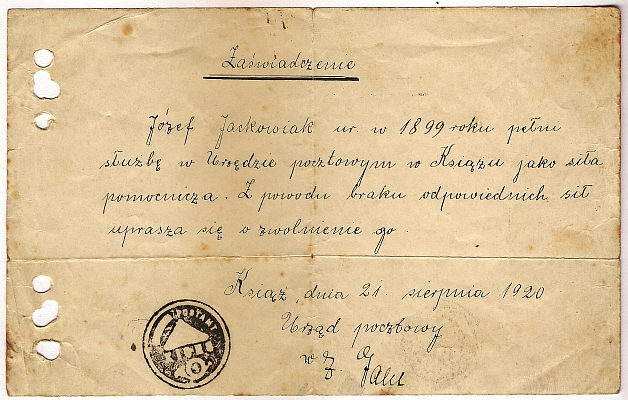 Zaświadczenie
Józef Jackowiak ur. w 1899 roku pełni
służbę w Urzędzie pocztowym w Książu jako siła
pomocnicza. Z powodu braku odpowiednich sił
uprasza się o zwolnienie go.
Książ dnia 21. sierpnia 1920
Urząd pocztowy
w Z.